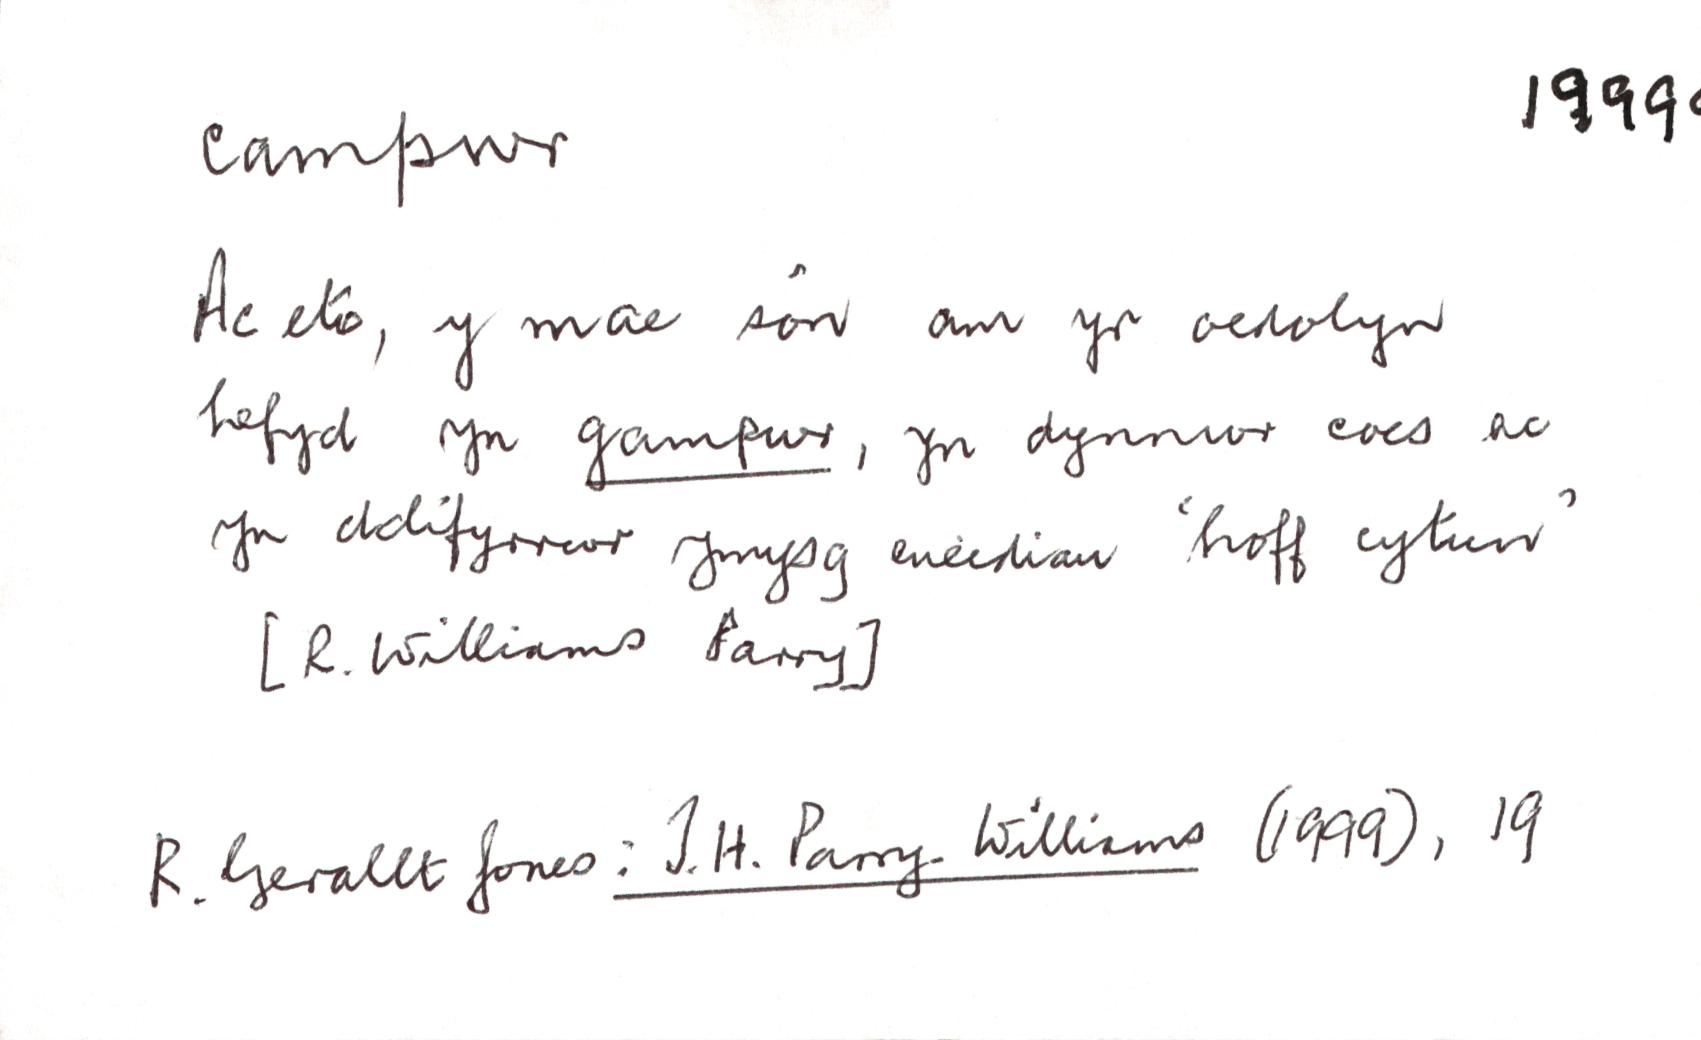 1999
campwr
Ac eto, y mae sôn am yr oedolyn
hefyd yn gampwr, yn dynnwr coes ac
yn ddifyrrwr ymysg eneidiau 'hoff cytun'
[R. Williams Parry]
R. Gerallt Jones: T.H. Parry-Williams (1999), 19